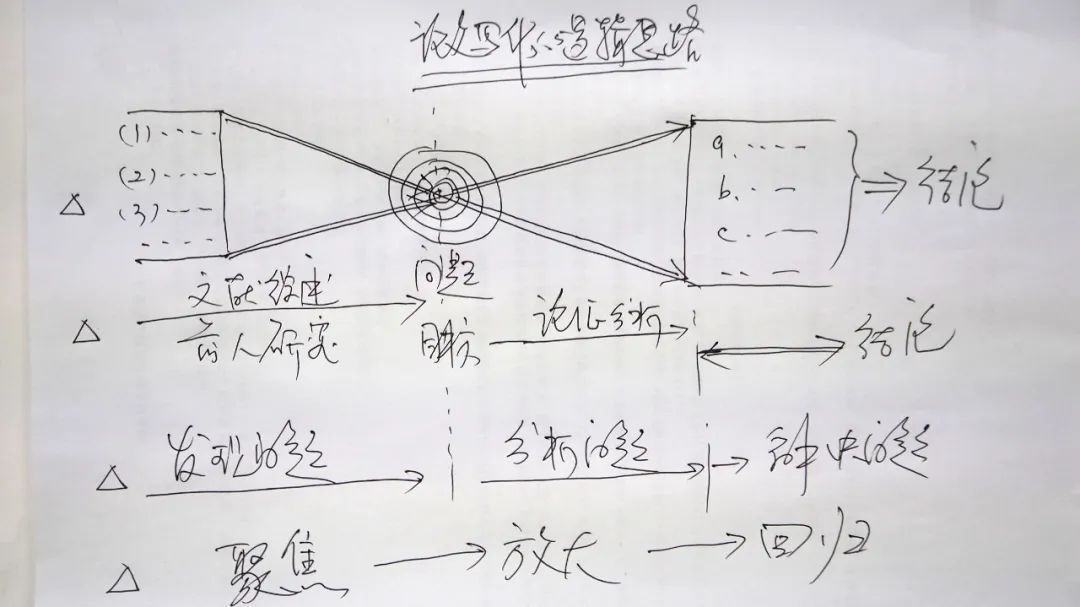 论文写作的逻辑思路
(1)----
(2)----
(3)----
-----
a.----
b.--
c.--
----
⇒结论
△
文献综述
问题
△
前人研究
目标
论证分析
结论
△ 发现问题
分析问题
→解决问题
△ 聚焦→放大→回归